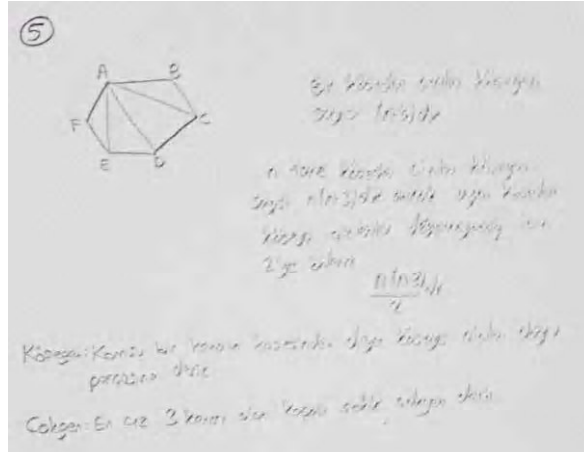 5
A B
F C
E D
Bir köşeden çizilen köşegen
sayısı (n-3)dir
n tane köşeden çizilen köşegen
sayısı n(n-3)dür ancak aynı
köşeye
2'ye
n(n-3)/2 dir
Köşegen: Komşu bir köşesinden diğer köşeye çizilen doğru
parçasına denir
Çokgen: En az 3 kenarı olan kapalı şekle çokgen denir